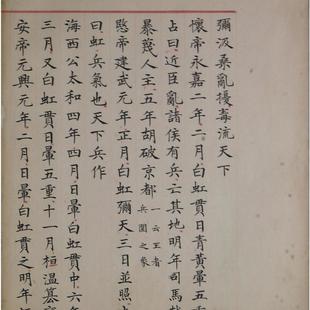 彌汲桑亂擾毒流天下
懷帝永嘉二年二月白虹貫日青黃暈五
占曰近臣亂諸侯有兵亡其地明年司馬
暴蔑人主五年胡破京都一云王者兵圍之象
愍帝建武元年正月白虹彌天三日並照
曰虹兵氣也天下兵作
海西公太和四年四月日暈白虹貫中六
三月又白虹貫日暈五重十一月桓溫
安帝元興元年二月日暈白虹貫之明年